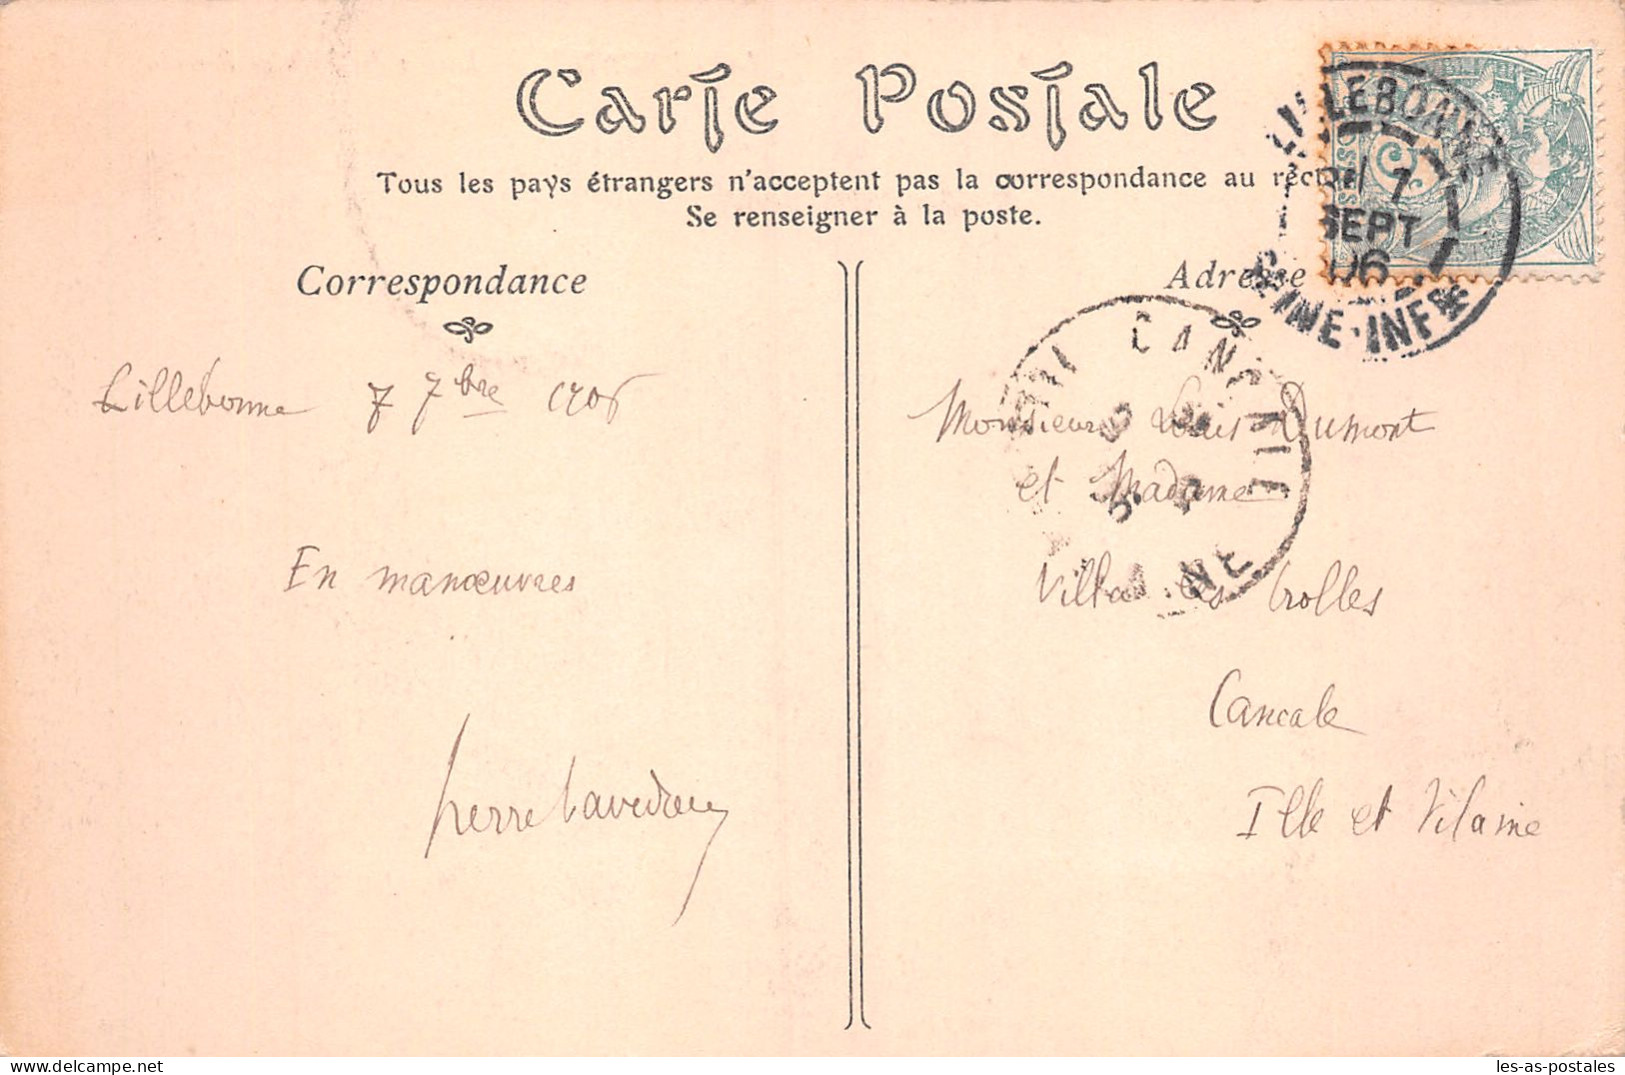 Carte Postale
Tous les pays étrangers n'acceptent pas la correspondance au recto
Se renseigner à la poste.
Correspondance
Adresse
LILLEBONNE
7
SEPT
06
SEINE-INFRE
CANCALE
Lillebonne 7 7bre 1906
En manœuvres
Pierre
Monsieur Louis Dumont
et Madame
Villa les
Cancale
Ille et Vilaine
les-as-postales